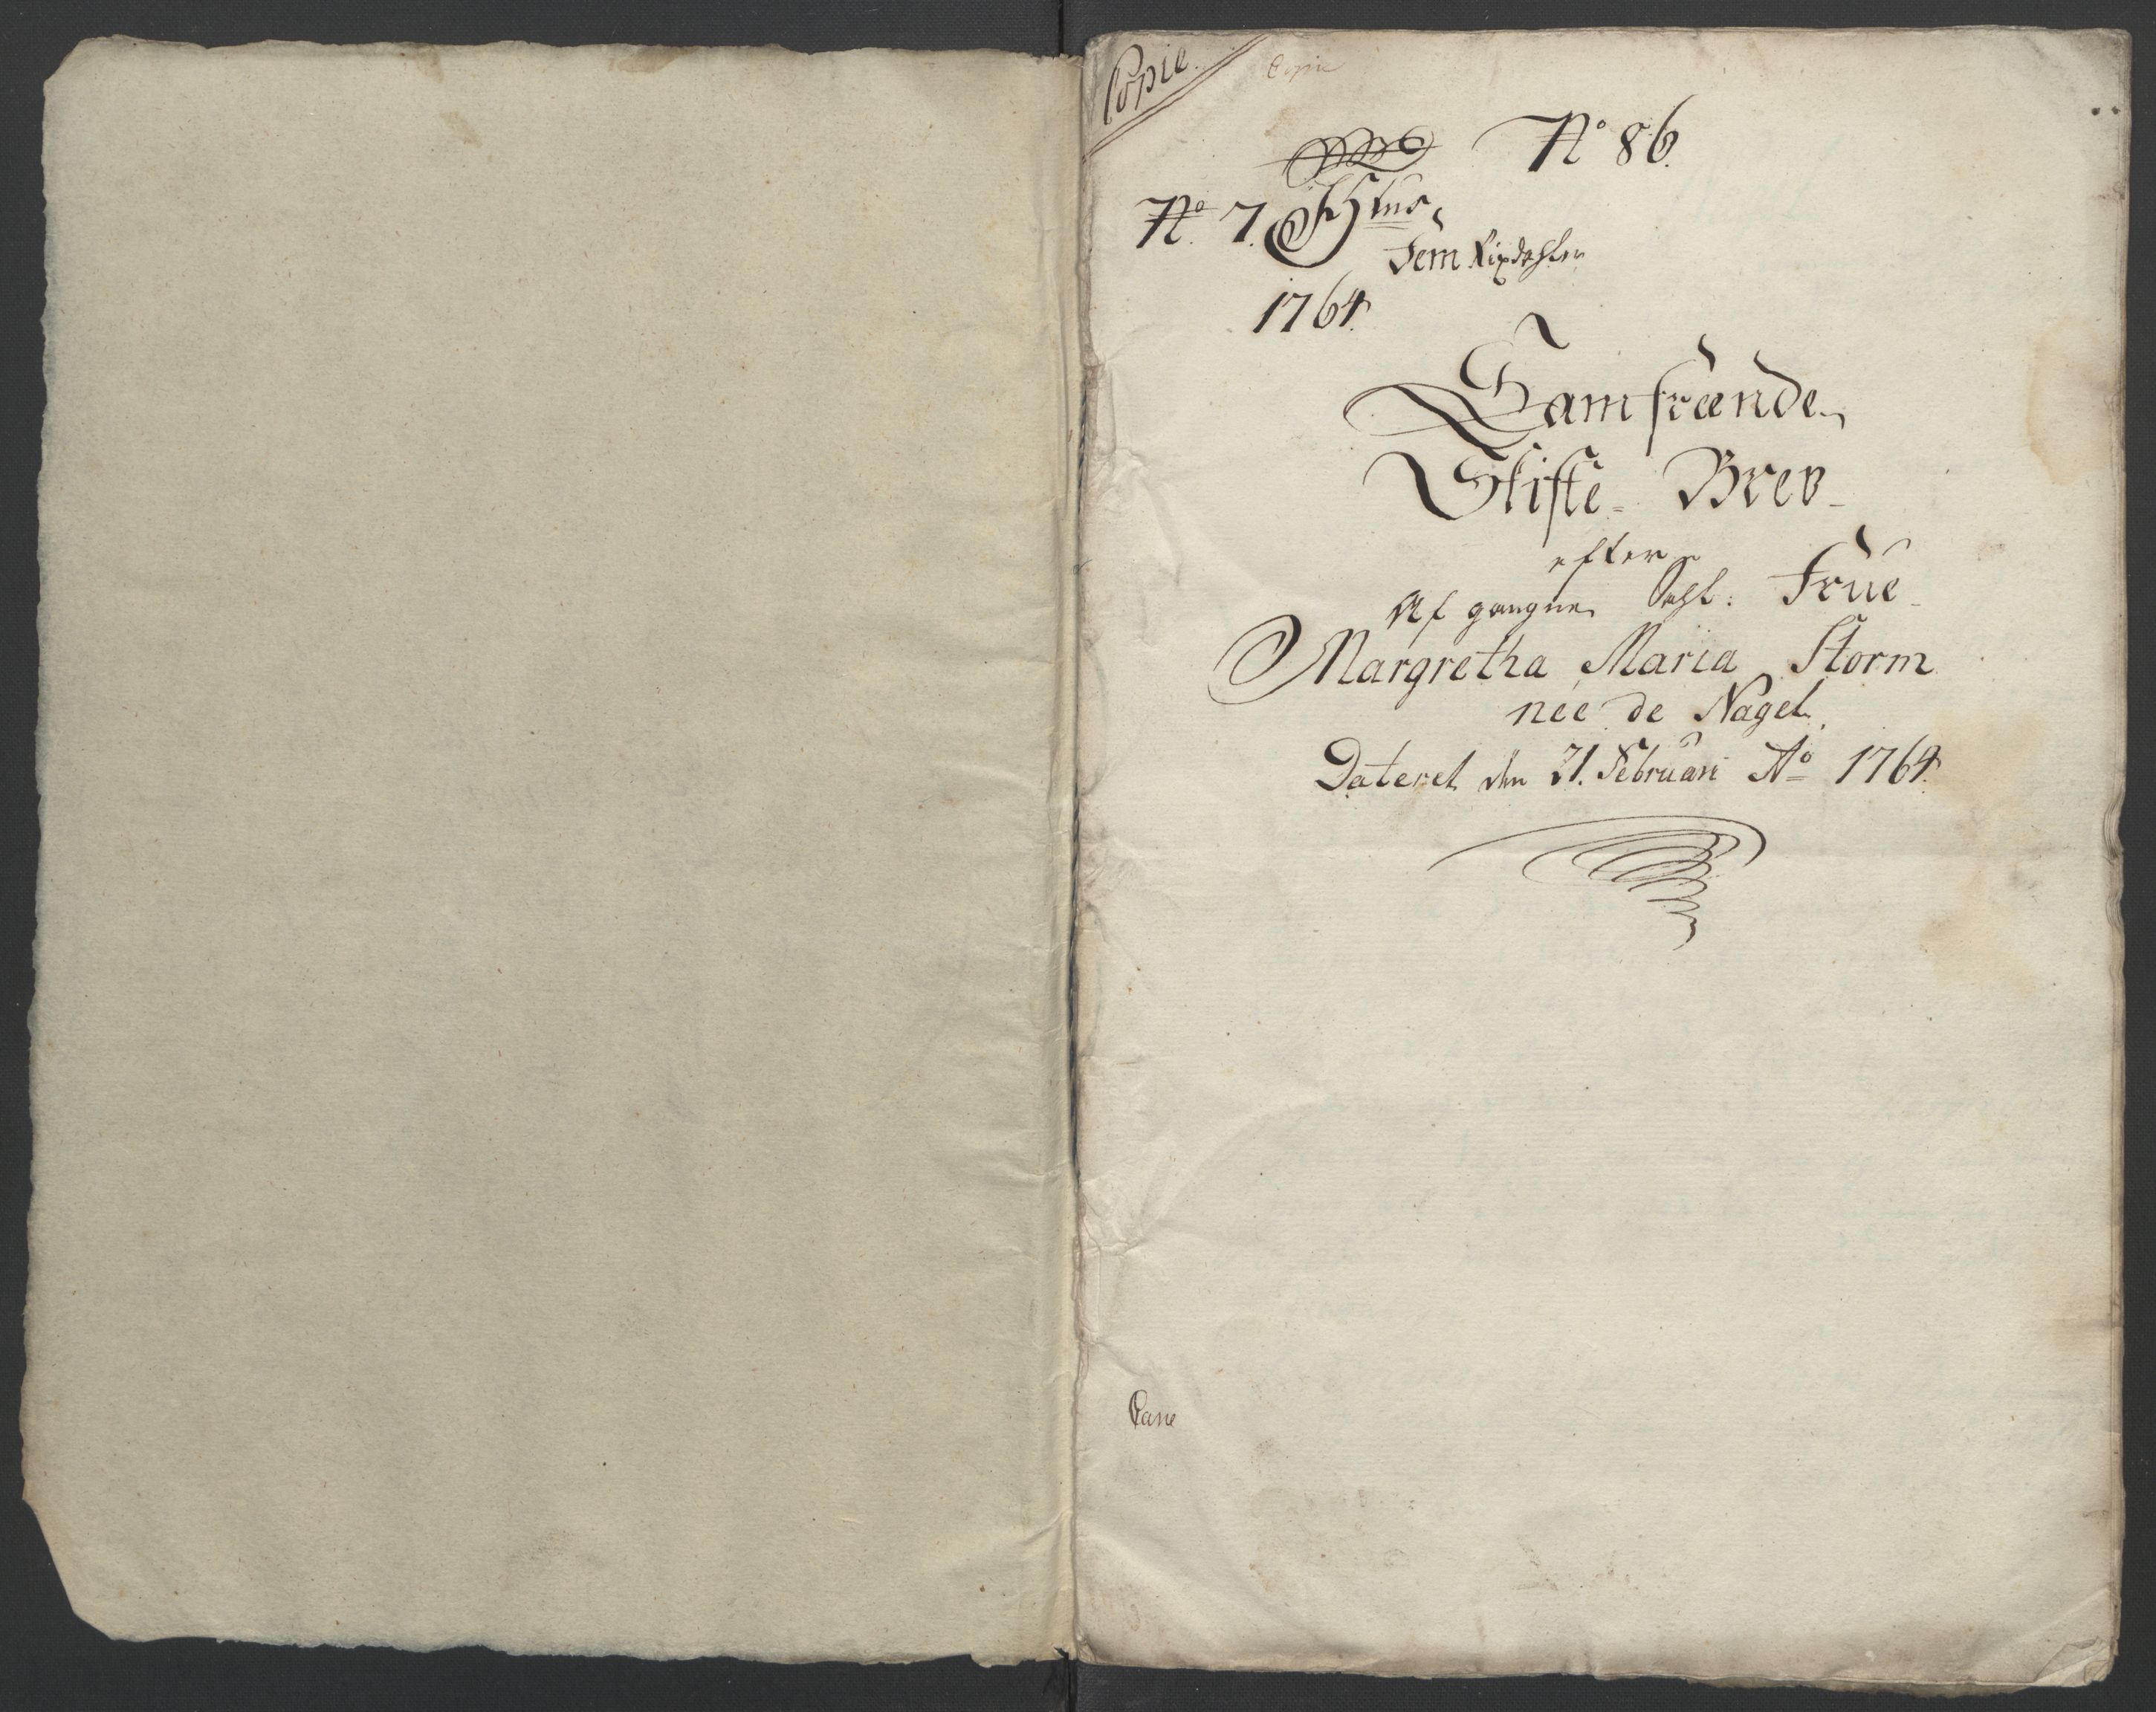 Copie
Copie
No 86.
No. 7.
Fem Rixdahler
1764.
Samfrænde
Skifte- Brev
efter
Afgangne Sahl: Frue
Margretha Maria Storm
née de Nagel.
Dateret den 21. Februari Ao 1764.